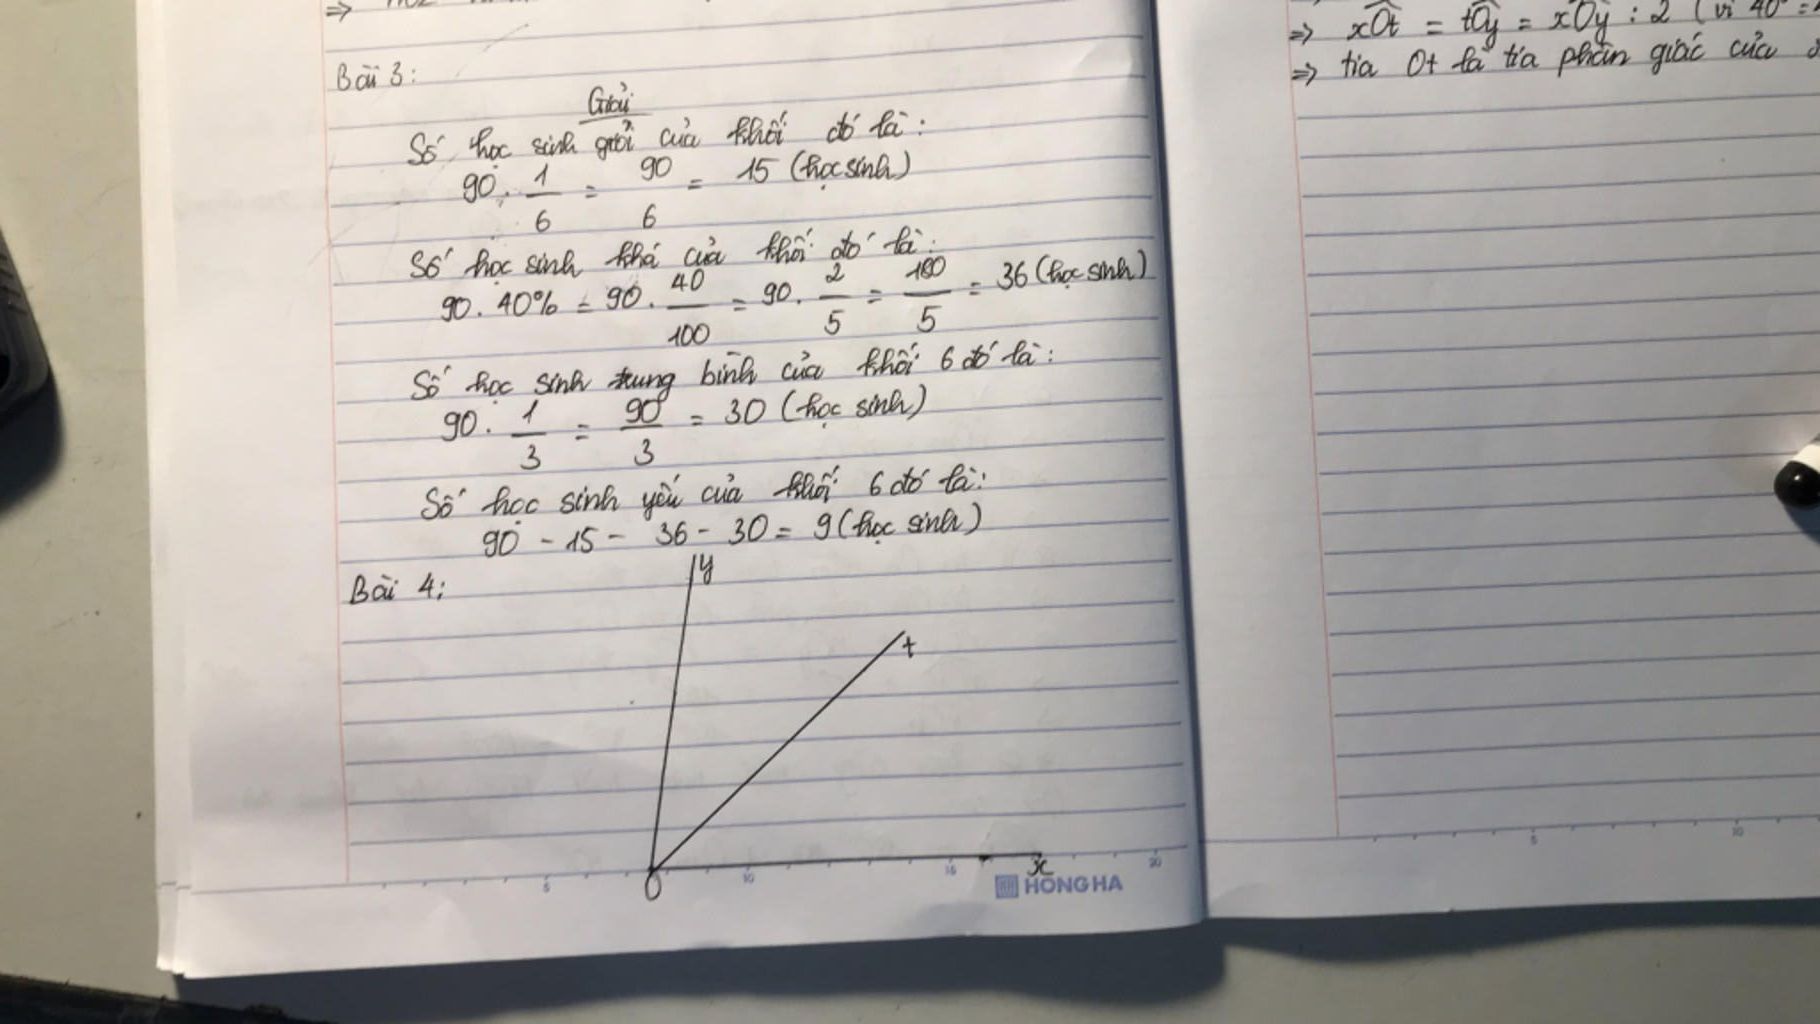 ⇒
Bài 3:
Giải
Số học sinh giỏi của khối đó là:
90 . 1/6 = 90/6 = 15 (học sinh)
Số học sinh khá của khối đó là:
90 . 40% = 90 . 40/100 = 90 . 2/5 = 180/5 = 36 (học sinh)
Số học sinh trung bình của khối 6 đó là:
90 . 1/3 = 90/3 = 30 (học sinh)
Số học sinh yếu của khối 6 đó là:
90 - 15 - 36 - 30 = 9 (học sinh)
Bài 4:
y
t
O
x
5 10 15 20
HONG HA
⇒ xOt = tOy = xOy : 2 (vì 40° =
⇒ tia Ot là tia phân giác của
5 10